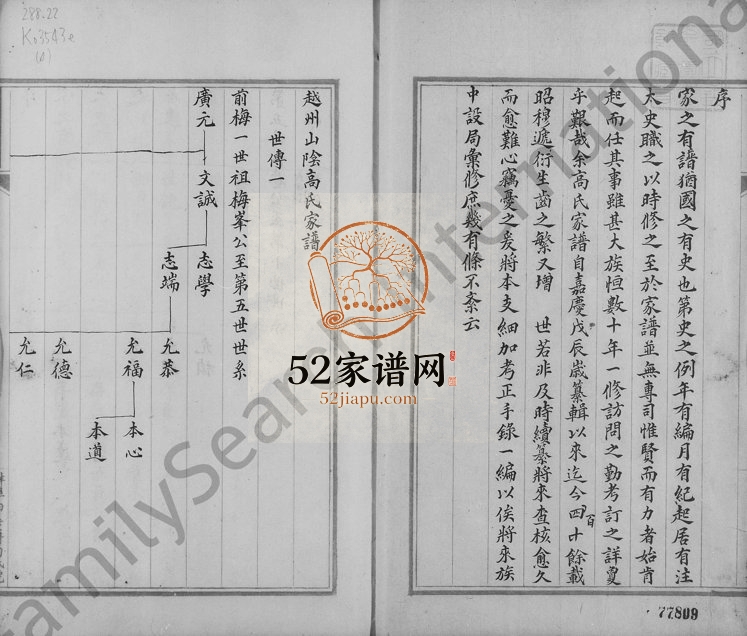 序
家之有譜猶國之有史也第史之例年有編月有紀起居有注
太史職之以時修之至於家譜並無專司惟賢而有力者始肯
起而任其事雖甚大族恒數十年一修訪問之勤考訂之詳戞
乎艱哉余高氏家譜自嘉慶戊辰歲纂輯以來迄今四十餘載
百
昭穆遞衍生齒之繁又增 世若非及時續纂將來查核愈久
而愈難心竊憂之爰將本支細加考正手錄一編以俟將來族
中設局彙修庶幾有條不紊云
越州山陰高氏家譜
世傳一
前梅一世祖梅峯公至第五世世系
廣元
文誠
志學
志端
允恭
允福
允德
允仁
本心
本道
288.22
K03543e
(6)
77809
52家谱网
52jiapu.com
FamilySearch International